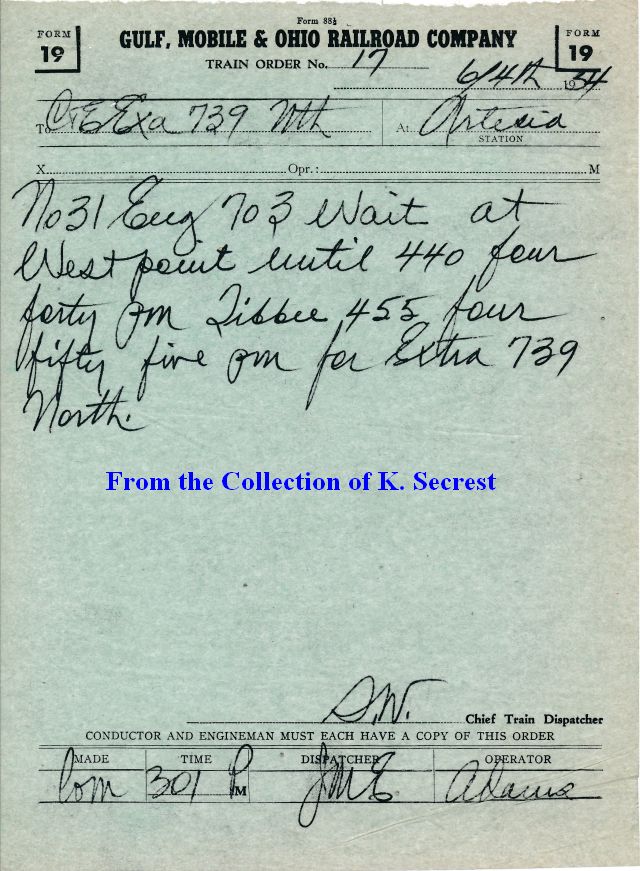 Form 88½
FORM
19
GULF, MOBILE & OHIO RAILROAD COMPANY
FORM
19
TRAIN ORDER No. 17
6/4th 1954
To C&E Exa 739 Nth At Artesia
STATION
X Opr.: M
No 31 Eng 703 Wait at
West point until 440 four
forty pm Tibbee 455 four
fifty five pm for Extra 739
North.
From the Collection of K. Secrest
S.W. Chief Train Dispatcher
CONDUCTOR AND ENGINEMAN MUST EACH HAVE A COPY OF THIS ORDER
MADE TIME DISPATCHER OPERATOR
Com 301 P M JME Adams